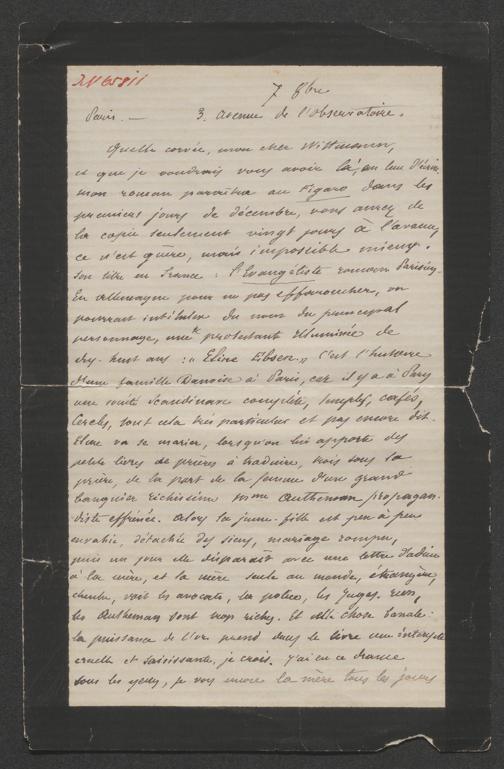 7 8bre
Paris. — 3. avenue de l'Observatoire.
Quelle corvée, mon cher Wittmann,
et que je voudrais vous avoir là, au lieu d'écrire.
mon roman paraîtra au Figaro dans les
premiers jours de décembre, vous aurez de
la copie seulement vingt jours à l'avance,
ce n'est guère, mais impossible mieux.
Son titre en France : l'Evangéliste roman Parisien.
En Allemagne pour ne pas effaroucher, on
pourrait intituler du nom du principal
personnage, une protestante illuminée de
dix-huit ans : « Eline Ebsen » C'est l'histoire
d'une famille Danoise à Paris, car il y a à Paris
une société Scandinave complète, temples, cafés,
Cercles, tout cela très particulier et pas encore dit.
Eline va se marier, lorsqu'on lui apporte des
petits livres de prières à traduire, trois sous la
prière, de la part de la femme d'un grand
banquier richissime Mme Autheman propagan-
diste effrénée. Alors la jeune fille est peu à peu
envahie, détachée des siens, mariage rompu,
puis un jour elle disparaît avec une lettre d'adieu
à la mère, et la mère seule au monde, étrangère,
cherche, voit les avocats, la police, les juges. rien,
les Autheman sont trop riches. Et cette chose banale :
la puissance de l'or prend dans le livre une intensité
cruelle et saisissante, je crois. J'ai eu ce drame
sous les yeux, je vois encore la mère tous les jours